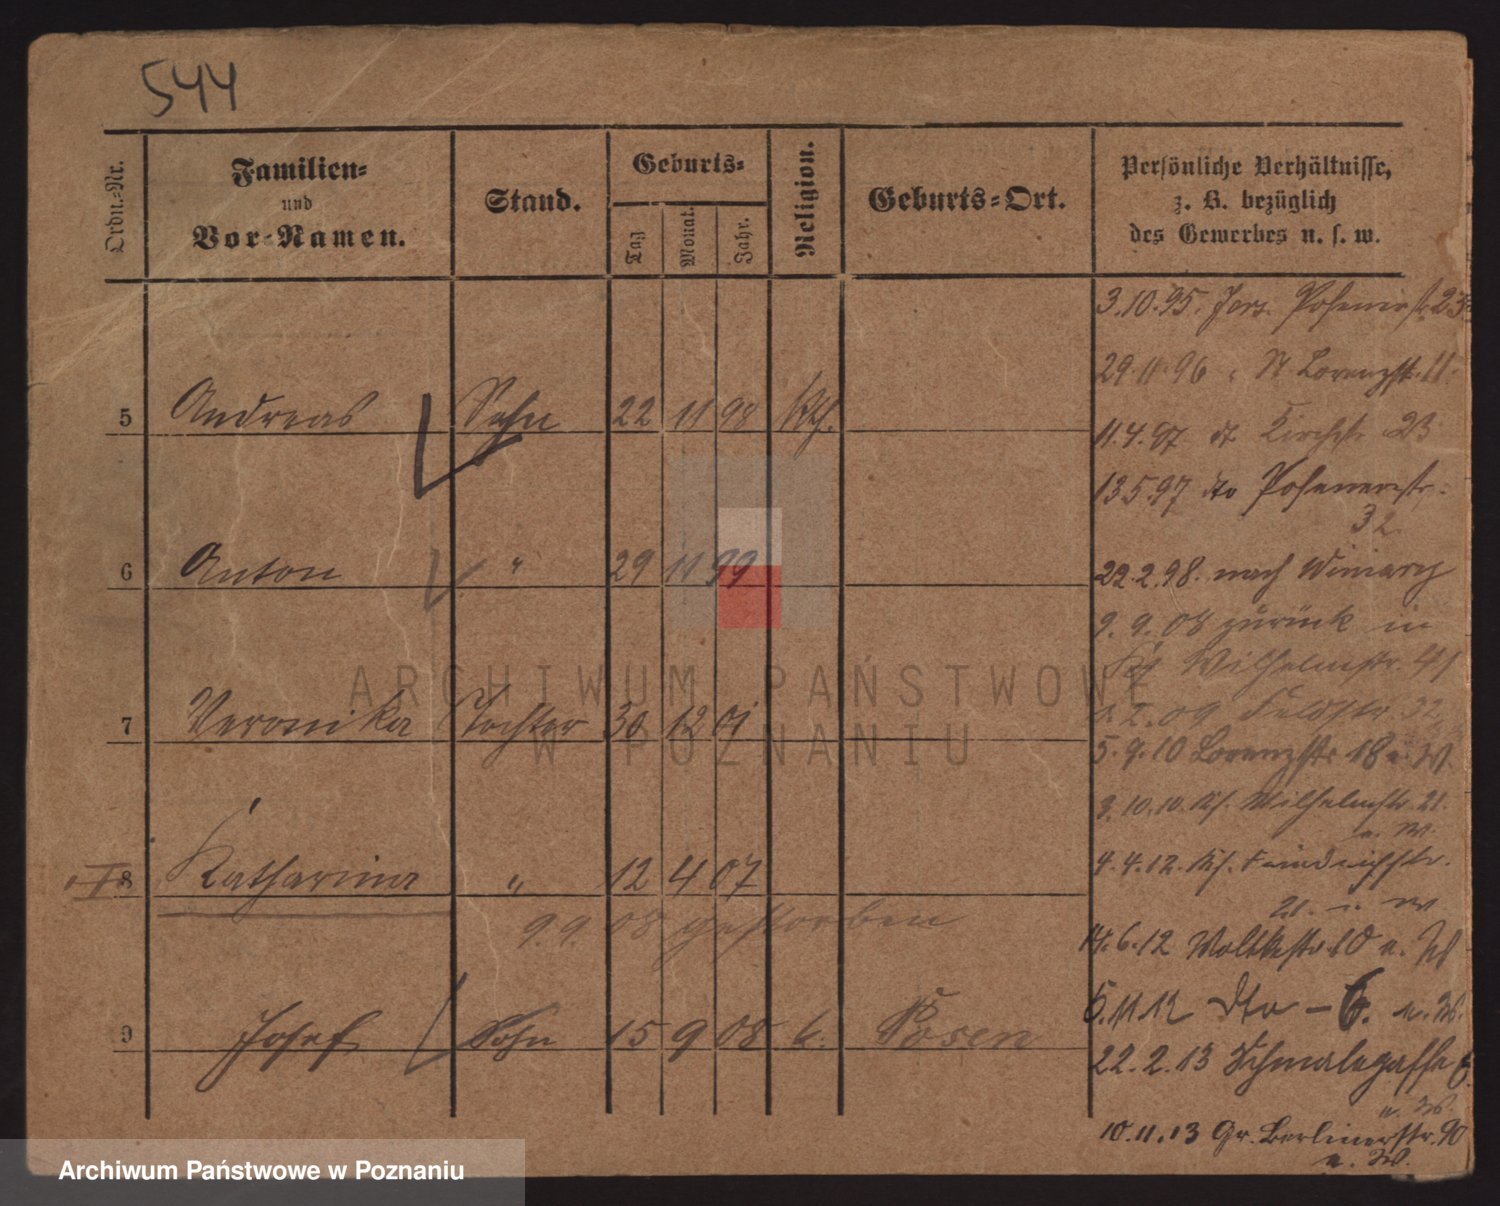 544
Ordn.-Nr.
Familien-
und
Vor-Namen.
Stand.
Geburts-
Tag
Monat.
Jahr.
Religion.
Geburts-Ort.
Persönliche Verhältnisse,
z. B. bezüglich
des Gewerbes u. s. w.
3.10.95. Jers. Posenerstr. 23
29.11.96 St Lorenzstr. 11.
5 Andreas Sohn 22 11 98 kth.
11.4.97 dt Kirchstr 23
13.5.97 dto Posenerstr.
32.
6 Anton " 29 11 99
22.2.98. nach Winiary
9.9.08 zurück in
Wilhelmstr. 41
7 Veronika Tochter 30 12 01
2.09 Feldstr. 32
5.9.10 Lorenzstr 18 u. W.
3.10.10. Wilhelmstr. 21.
u. W.
8 Katharina " 12 4 07
4.4.12. Friedrichstr.
21. u. W.
9.9.08 gestorben
14.6.12 Moltkestr. 10 u.
9 Josef Sohn 15 9 08 k. Posen
5.11.12 dto – 6. u. W.
22.2.13 Schmalegasse 6.
u. W.
10.11.13 Gr. Berlinerstr. 90
u. W.
ARCHIWUM PAŃSTWOWE
W POZNANIU
Archiwum Państwowe w Poznaniu